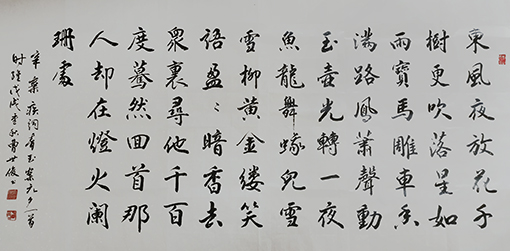 東風夜放花千
樹更吹落星如
雨寶馬雕車香
滿路鳳蕭聲動
玉壺光轉一夜
魚龍舞蛾兒雪
雪柳黃金缕笑
語盈〻暗香去
衆裏尋他千百
度驀然回首那
人却在燈火阑
珊處
辛棄疾詞青玉案元夕一首
戊戌